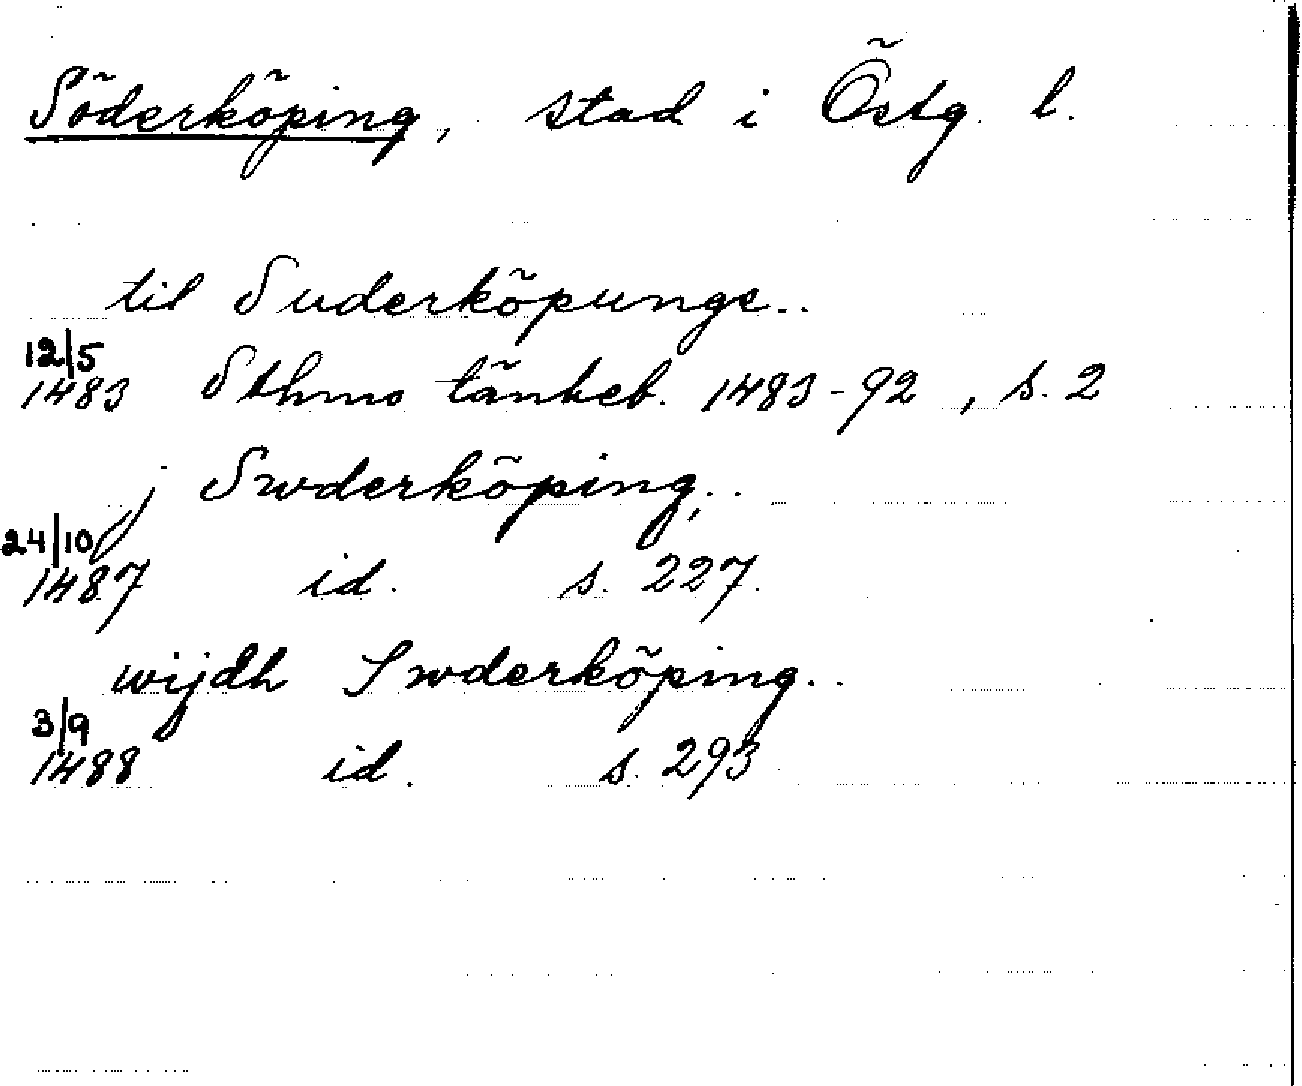 Söderköping, stad i Östg. l.
til Suderköpunge..
12/5
1483 Sthmo tänkeb. 1483-92, s. 2
j Swderköping,..
24/10
1487 id. s. 227.
wijdh Swderköping..
3/9
1488 id. s. 293